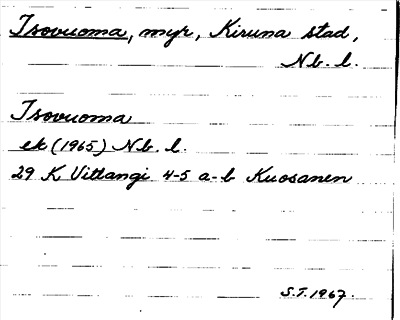 Isovuoma, myr, Kiruna stad,
Nb. l.
Isovuoma
ek (1965) Nb. l.
29 K Vittangi 4-5 a-b Kuosanen
S.T. 1967.